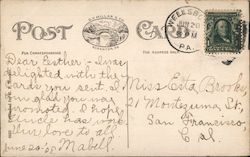 POST CARD
FOR CORRESPONDENCE
FOR ADDRESS ONLY
JUN 20
PA.
Dear Esther:- I was
delighted with the
cards you sent. I
am glad you was
promoted. I hope
Uncle has work
then love to all
Mabell.
June 20-'08
Miss Esta Brooks,
21 Montezuma St,
San Francisco
Cal.